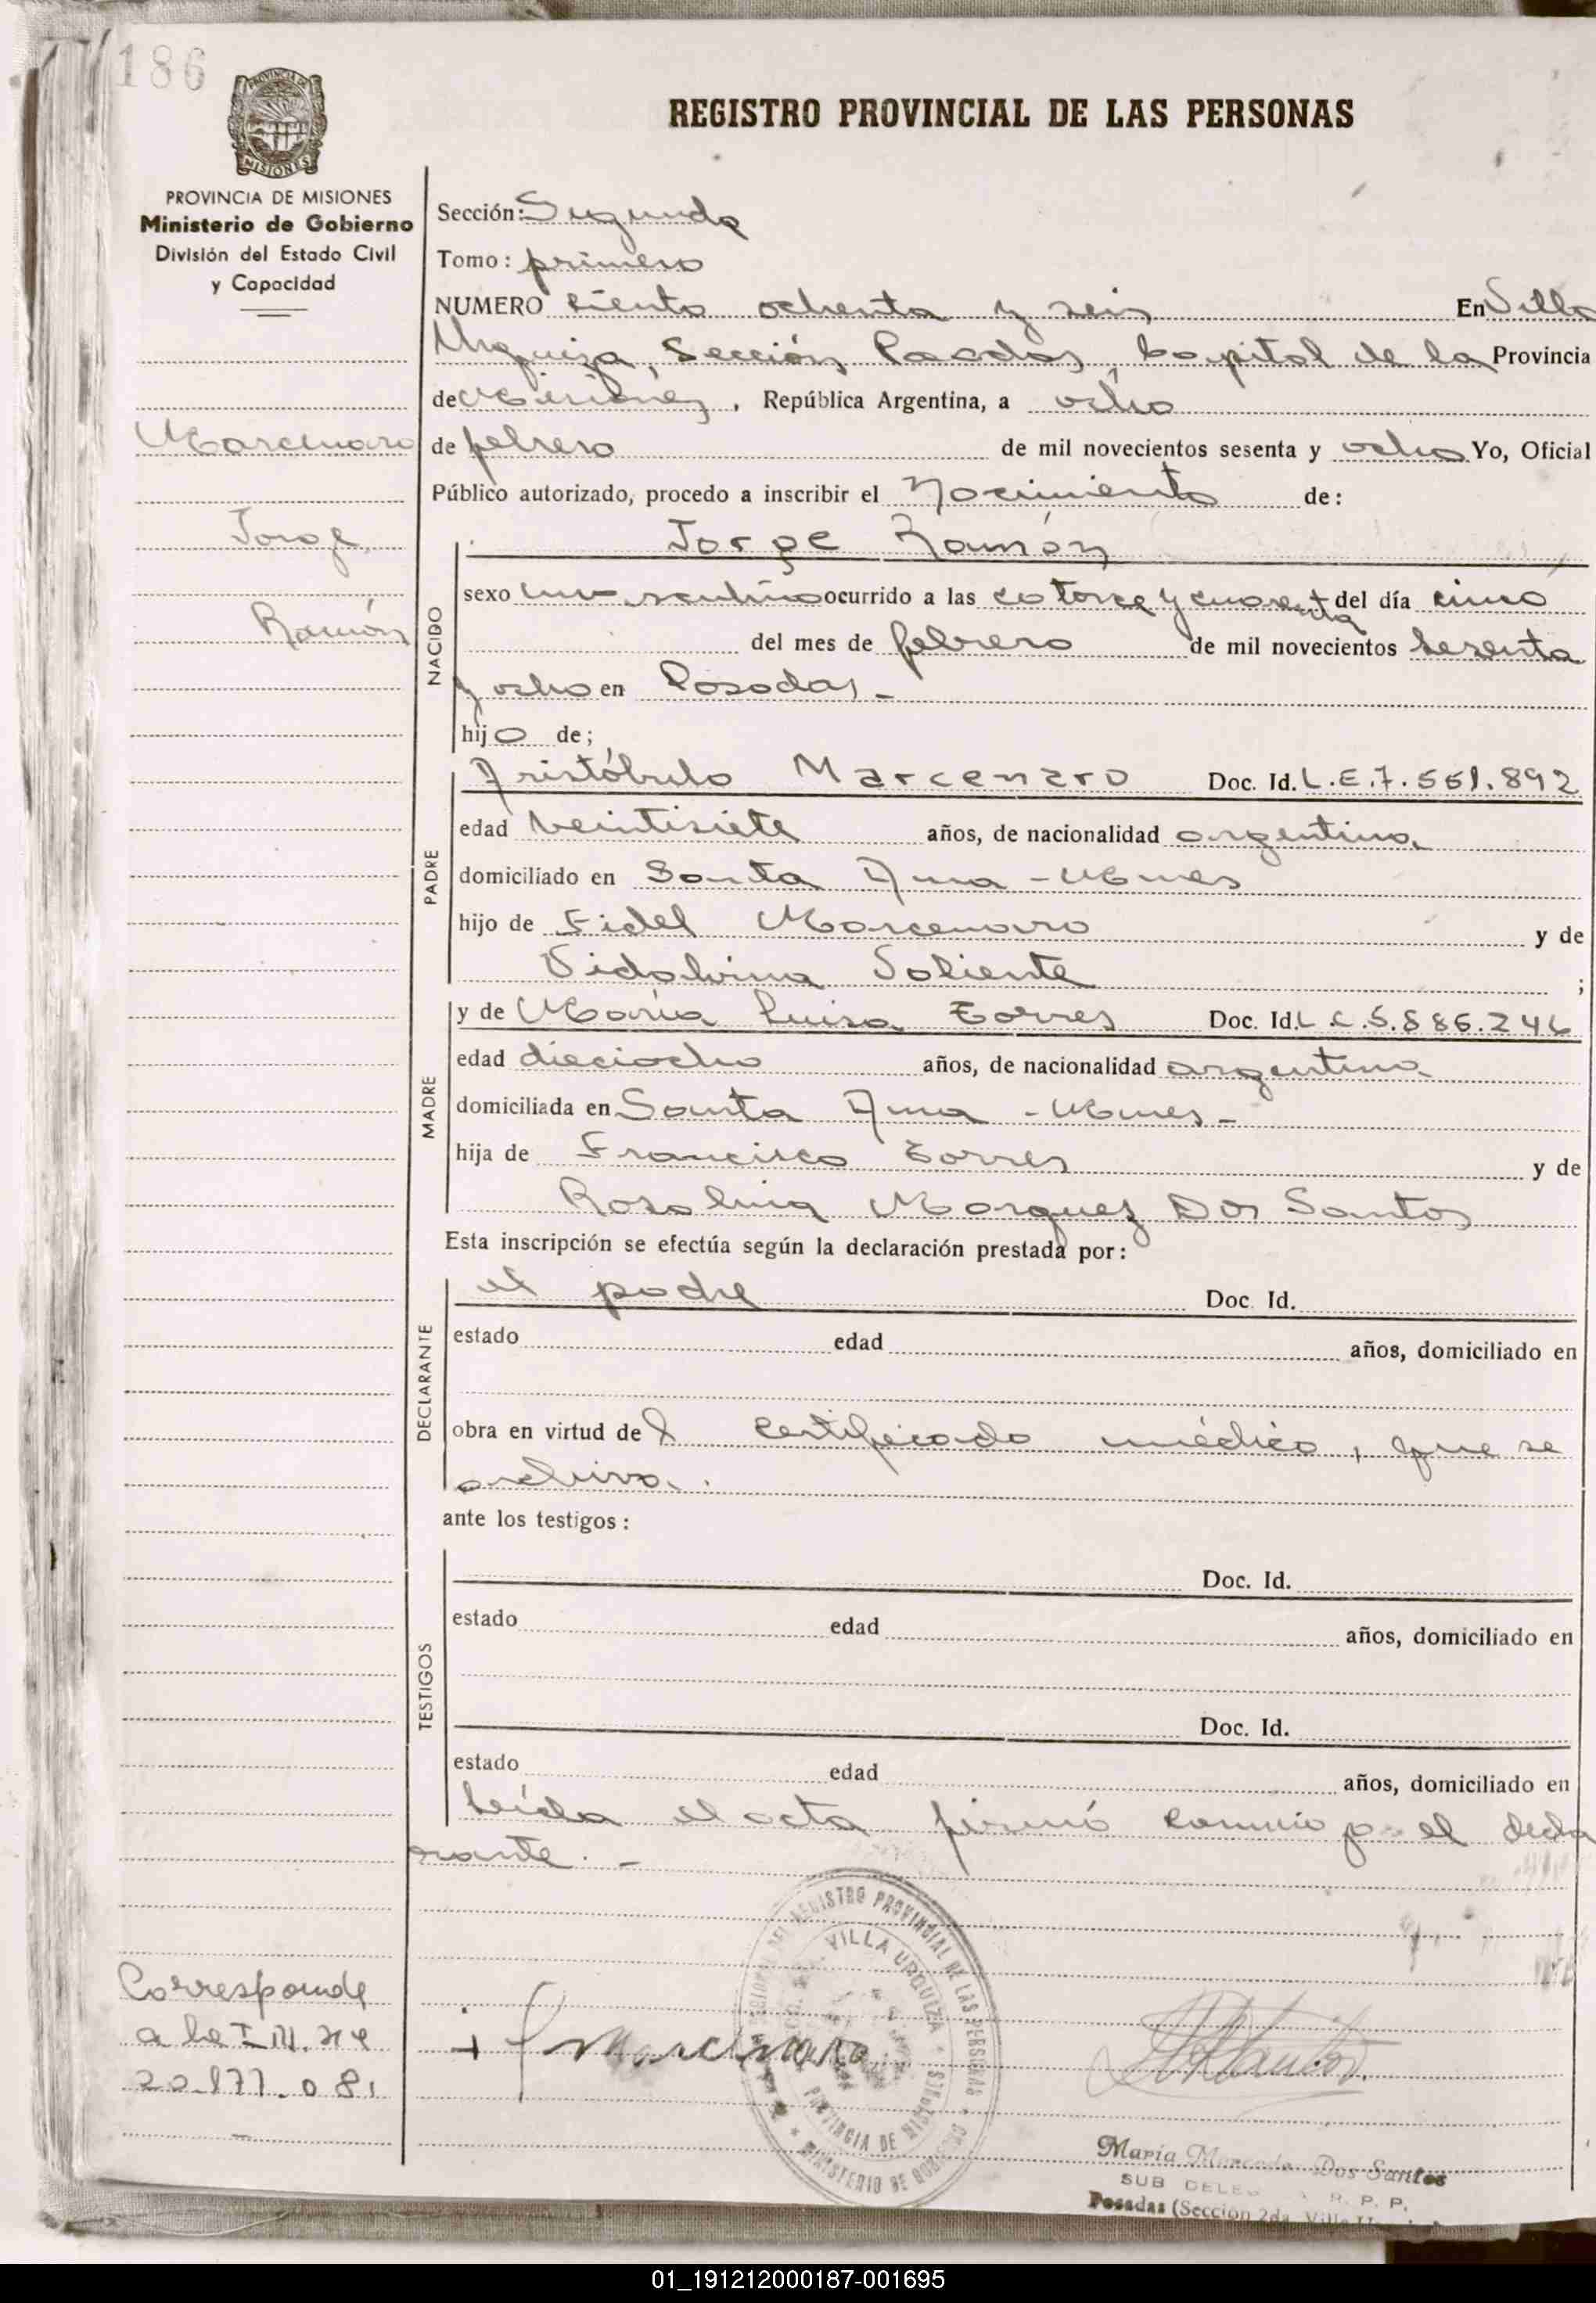 186
PROVINCIA DE
MISIONES
PROVINCIA DE MISIONES
Ministerio de Gobierno
División del Estado Civil
y Capacidad
Marcenaro
Jorge
Ramón
Corresponde
a la
20.177.081
REGISTRO PROVINCIAL DE LAS PERSONAS
Sección: Segunda
Tomo: primero
NUMERO ciento ochenta y seis En Villa
Urquiza, Sección Posadas, Capital de la Provincia
de Misiones, República Argentina, a ocho
de febrero de mil novecientos sesenta y ocho Yo, Oficial
Público autorizado, procedo a inscribir el Nacimiento de:
Jorge Ramón
NACIDO
sexo masculino ocurrido a las catorce y cuarenta del día cinco
del mes de febrero de mil novecientos sesenta
y ocho en Posadas -
hijo de;
PADRE
Aristóbulo Marcenaro Doc. Id. L.E.7.551.892
edad veintisiete años, de nacionalidad argentina
domiciliado en Santa Ana - Mnes
hijo de Fidel Marcenaro y de
Vidalvina ;
MADRE
y de María Luisa Torres Doc. Id. L.C.5.886.246
edad dieciocho años, de nacionalidad argentina
domiciliada en Santa Ana - Mnes -
hija de Francisco Torres y de
Rosalina Marquez Dos Santos
Esta inscripción se efectúa según la declaración prestada por:
DECLARANTE
el padre Doc. Id.
estado edad años, domiciliado en
obra en virtud del certificado médico, que se
archiva.
ante los testigos:
TESTIGOS
Doc. Id.
estado edad años, domiciliado en
Doc. Id.
estado edad años, domiciliado en
Leída el acta firmó conmigo el decla
rante. -
REGISTRO PROVINCIAL DE LAS PERSONAS
VILLA URQUIZA
PROVINCIA DE MISIONES
MINISTERIO DE GOBIERNO
Marcenaro
María Dos Santos
SUB R. P. P.
Posadas (Sección 2da. Villa
01_191212000187-001695